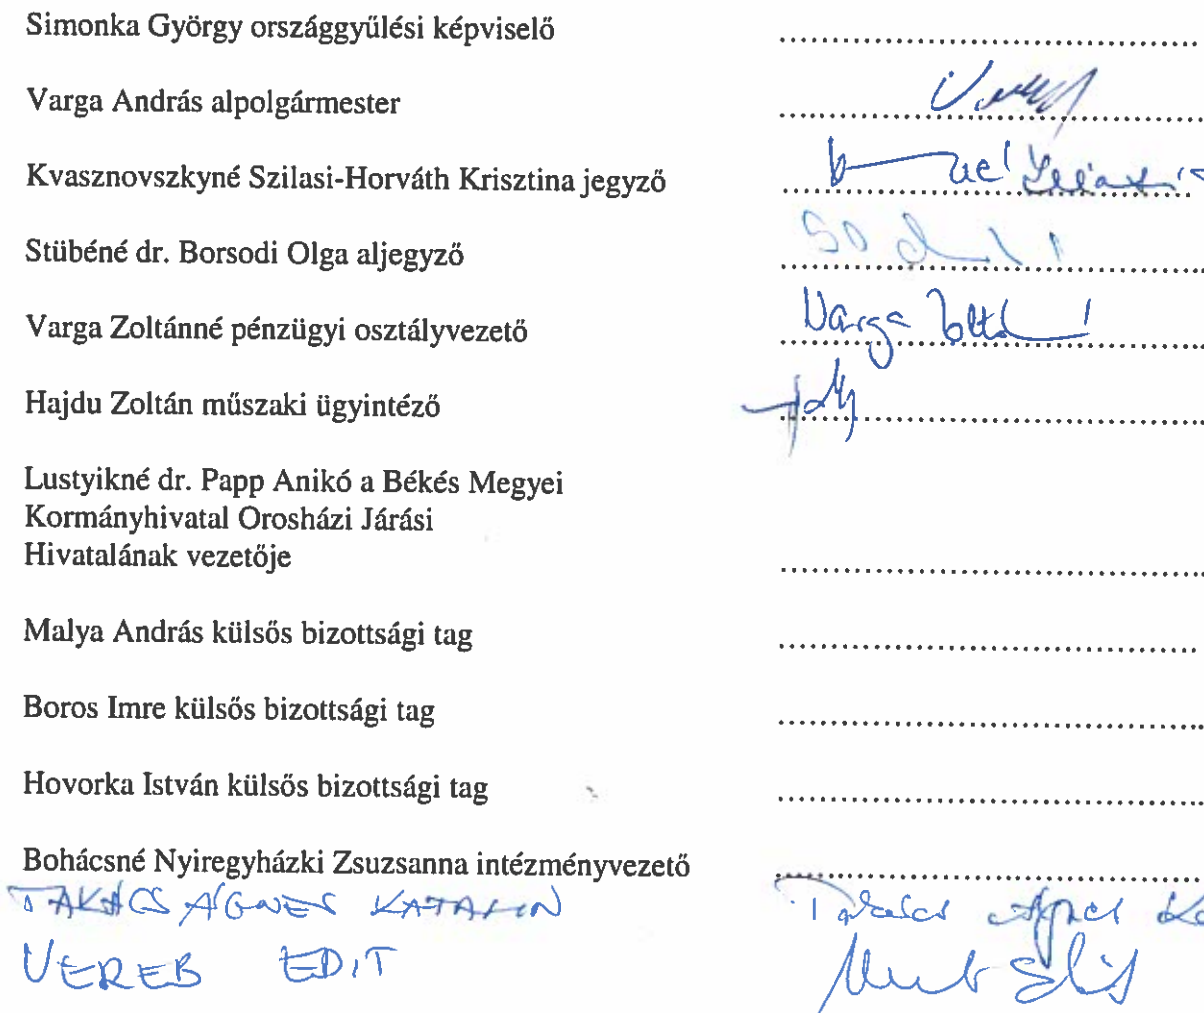 Simonka György országgyűlési képviselő ........................................
Varga András alpolgármester ........................................
Kvasznovszkyné Szilasi-Horváth Krisztina jegyző ........................................
Stübéné dr. Borsodi Olga aljegyző ........................................
Varga Zoltánné pénzügyi osztályvezető Varga
Hajdu Zoltán műszaki ügyintéző ........................................
Lustyikné dr. Papp Anikó a Békés Megyei
Kormányhivatal Orosházi Járási
Hivatalának vezetője ........................................
Malya András külsős bizottsági tag ........................................
Boros Imre külsős bizottsági tag ........................................
Hovorka István külsős bizottsági tag ........................................
Bohácsné Nyiregyházki Zsuzsanna intézményvezető ........................................
TAKÁCS ÁGNES KATALIN Takács Ágnes
VEREB EDIT